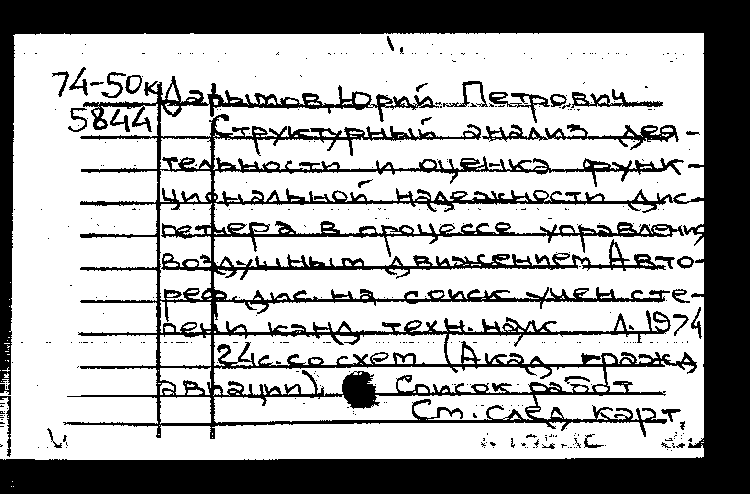 74-50к Дарымов, Юрий Петрович
5844 Структурный анализ дея-
тельности и оценка функ-
циональной надежности дис-
петчера в процессе управления
воздушным движением. Авто-
реф. дис. на соиск учен сте-
пени канд. техн. наук Л., 1974
24с. со схем. (Акад гражд
авиации). Список работ
См. след карт.